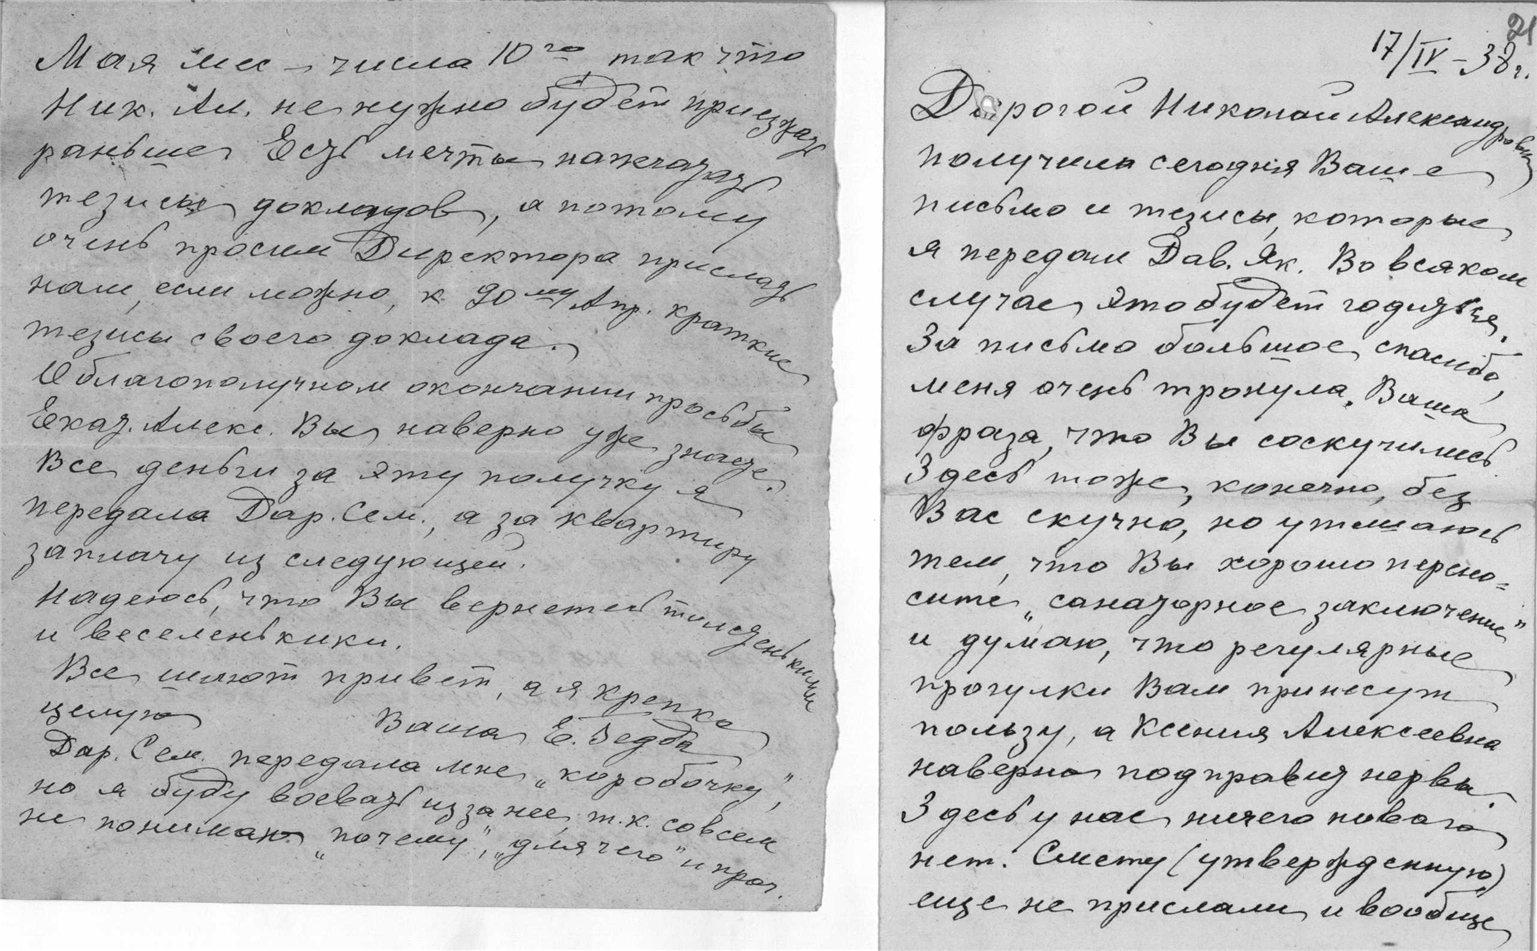 21
17/IV-38 г.
Дорогой Николай Александрович
получила сегодня Ваше
письмо и тезисы, которые
я передам Дав. Як. Во всяком
случае это будет годиться.
За письмо большое спасибо,
меня очень тронула Ваша
фраза, что Вы соскучились
Здесь тоже, конечно, без
Вас скучно, но утешаюсь
тем, что Вы хорошо перено-
сите „санаторное заключение"
и думаю, что регулярные
прогулки Вам принесут
пользу, а Ксения Алексеевна
наверно подправит нервы.
Здесь у нас ничего нового
нет. Смету (утвержденную)
еще не прислали и вообще
Мая мес – числа 10го так что
Ник. Ал. не нужно будет приезжать
раньше Есть мечты напечатать
тезисы докладов, а потому
очень просим Директора прислать
нам, если можно, к 20му Апр. краткие
тезисы своего доклада.
О благополучном окончании просьбы
Екат. Алекс. Вы наверно уже знаете.
Все деньги за эту получку я
передала Дар. Сем., а за квартиру
заплачу из следующей.
Надеюсь, что Вы вернетесь толстенькими
и веселенькими.
Все шлют привет, а я крепко
целую
Ваша Е.
Дар. Сем. передала мне „коробочку",
но я буду воевать из за нее, т.к. совсем
не понимаю „почему", „для чего" и проч.